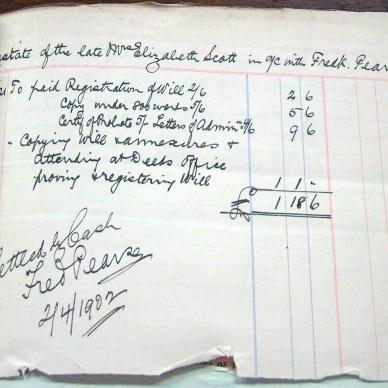 estate of the late Mrs Elizabeth Scott in a/c with Fredk. Pear
To paid Registration of Will 2/6 2 6
Copy under 800 words 5/6 5 6
Certy of Probate or Letters of Admin 9/6 9 6
" Copying Will & annexures &
attending at Deeds office
proving & registering Will 1 1 "
£ 1 18 6
Settled by Cash
Fred Pearse
2/4/1902